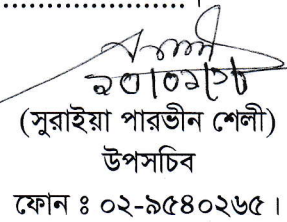 (সুরাইয়া পারভীন শেলী)
উপসচিব
ফোন ঃ ০২-৯৫৪০২৬৫।